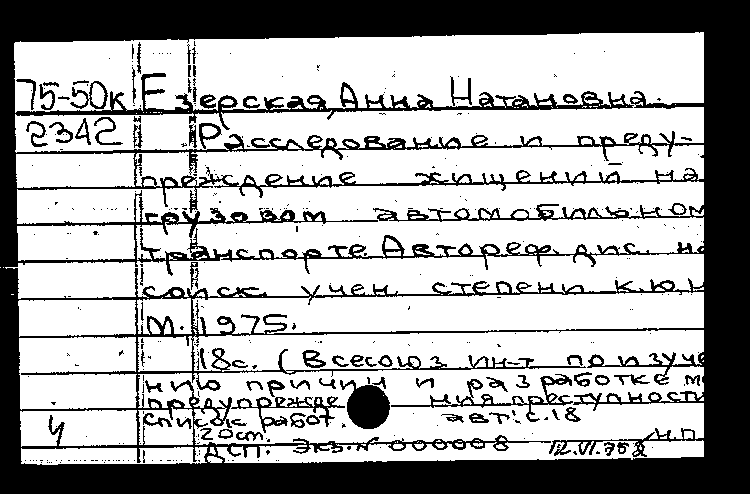 75-50к Езерская, Анна Натановна.
2342 Расследование и преду-
преждение хищений на
грузовом автомобильном
транспорте. Автореф. дис. на
соиск. учен. степени к.ю.н
М., 1975.
18с. (Всесоюз. ин-т по изуче
нию причин и разработке м
предупрежде ния преступности
список работ. авт.: с.18
ч 20см. н.п.
ДСП. Экз. № 000008 12.VI.75г